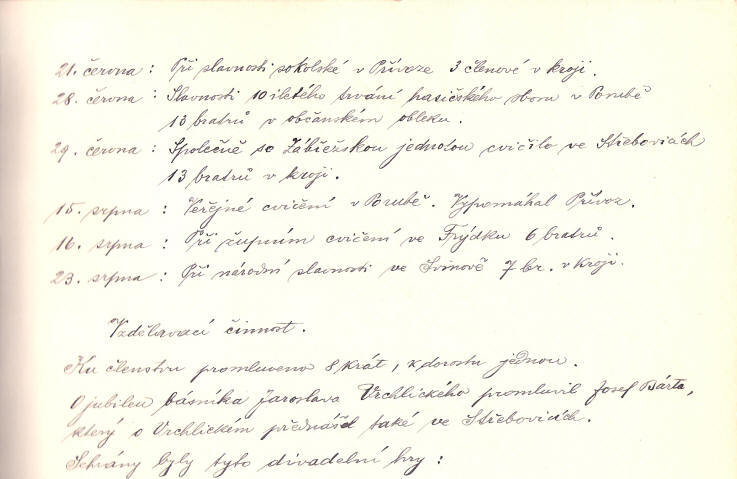 21. června : Při slavnosti sokolské v Přívoze 3 členové v kroji.
28. června : Slavnosti 10 iletého trvání hasičského sboru v Porubě
13 bratrů v občanském obleku.
29. června : Společně se Zábřežskou jednotou cvičilo ve Střebovicích
13 bratrů v kroji.
15. srpna : Veřejné cvičení v Porubě. Vypomáhal Přívoz.
16. srpna : Při župním cvičení ve Frýdku 6 bratrů.
23. srpna : Při národní slavnosti ve Svinově 7 br. v kroji.
Vzdělavací činnost.
Ku členstvu promluveno 8 krát, k dorostu jednou.
O jubileu básníka Jaroslava Vrchlického promluvil Josef Bárta,
který o Vrchlickém přednášel také ve Střebovicích.
Sehrány byly tyto divadelní hry :